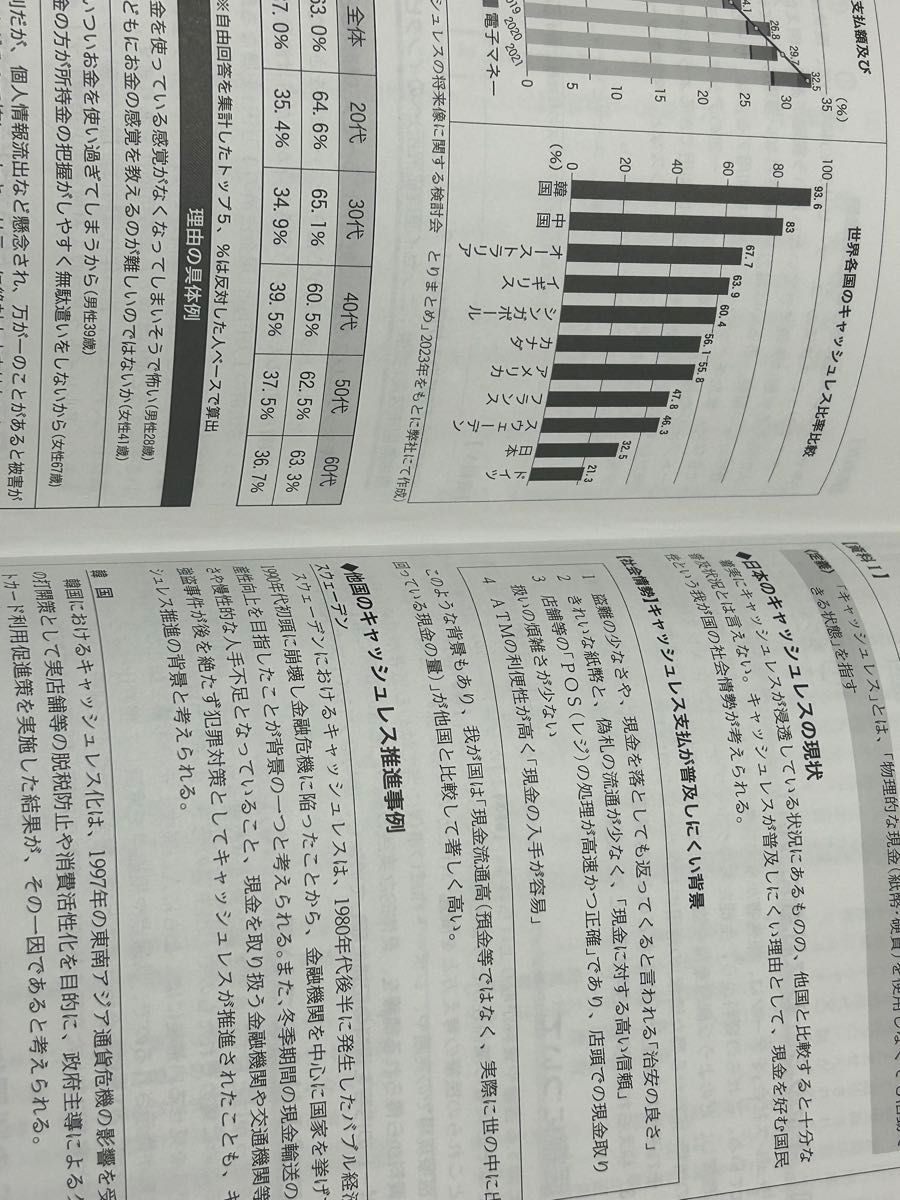 【資料1】
(定義)
「キャッシュレス」とは、「物理的な現金(紙幣・硬貨)を使用しなくても活動で
きる状態」を指す
◆日本のキャッシュレスの現状
キャッシュレスが浸透している状況にあるものの、他国と比較すると十分な
普及状況とは言えない。キャッシュレスが普及しにくい理由として、現金を好む国民
性という我が国の社会情勢が考えられる。
【社会情勢】キャッシュレス支払が普及しにくい背景
1 盗難の少なさや、現金を落としても返ってくると言われる「治安の良さ」
2 きれいな紙幣と、偽札の流通が少なく、「現金に対する高い信頼」
3 店舗等の「POS(レジ)の処理が高速かつ正確」であり、店頭での現金取り
扱いの煩雑さが少ない
4 ATMの利便性が高く「現金の入手が容易」
このような背景もあり、我が国は「現金流通高(預金等ではなく、実際に世の中に出
回っている現金の量)」が他国と比較して著しく高い。
◆他国のキャッシュレス推進事例
スウェーデン
スウェーデンにおけるキャッシュレスは、1980年代後半に発生したバブル経済
1990年代初頭に崩壊し金融危機に陥ったことから、金融機関を中心に国家を挙げ
産性向上を目指したことが背景の一つと考えられる。また、冬季期間の現金輸送の
さや慢性的な人手不足となっていること、現金を取り扱う金融機関や交通機関等
強盗事件が後を絶たず犯罪対策としてキャッシュレスが推進されたことも、キ
シュレス推進の背景と考えられる。
韓 国
韓国におけるキャッシュレス化は、1997年の東南アジア通貨危機の影響を受
の打開策として実店舗等の脱税防止や消費活性化を目的に、政府主導による
トカード利用促進策を実施した結果が、その一因であると考えられる。
支払額及び
(%)
35
30
25
20
15
10
5
0
26.8
29.7
32.5
2020
2021
電子マネー
世界各国のキャッシュレス比率比較
100
80
60
40
20
0
(%)
93.6
83
67.7
63.9
60.4
56.1
55.8
47.8
46.3
32.5
21.3
韓国
中国
オーストラリア
イギリス
シンガポール
カナダ
アメリカ
フランス
スウェーデン
日本
ドイツ
シュレスの将来像に関する検討会 とりまとめ」2023年をもとに弊社にて作成)
全体 20代 30代 40代 50代 60代
63.0% 64.6% 65.1% 60.5% 62.5% 63.3%
37.0% 35.4% 34.9% 39.5% 37.5% 36.7%
※自由回答を集計したトップ5、%は反対した人ベースで算出
理由の具体例
金を使っている感覚がなくなってしまいそうで怖い(男性28歳)
どもにお金の感覚を教えるのが難しいのではないか(女性41歳)
いついお金を使い過ぎてしまうから(男性39歳)
金の方が所持金の把握がしやすく無駄遣いをしないから(女性67歳)
利だが、個人情報流出など懸念され、万が一のことがあると被害が